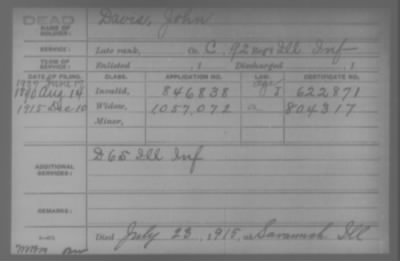 DEAD
NAME OF SOLDIER: Davis, John
SERVICE: Late rank, Co. C, 92 Reg't Ill Inf
TERM OF SERVICE: Enlisted , 1 Discharged , 1
DATE OF FILING. CLASS. APPLICATION NO. LAW. CERTIFICATE NO.
1890 Aug 14 Invalid, 846838 622871
1915 Dec 10 Widow, 1057,072 a 804317
Minor,
ADDITIONAL SERVICES: D 65 Ill Inf
REMARKS:
Died July 23, 1915, at Savannah Ill